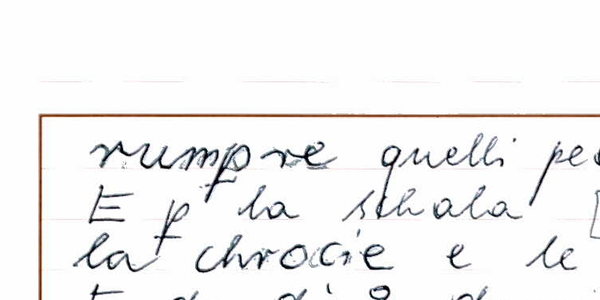 rumpre quelli
E p la schala
la chrocie e le